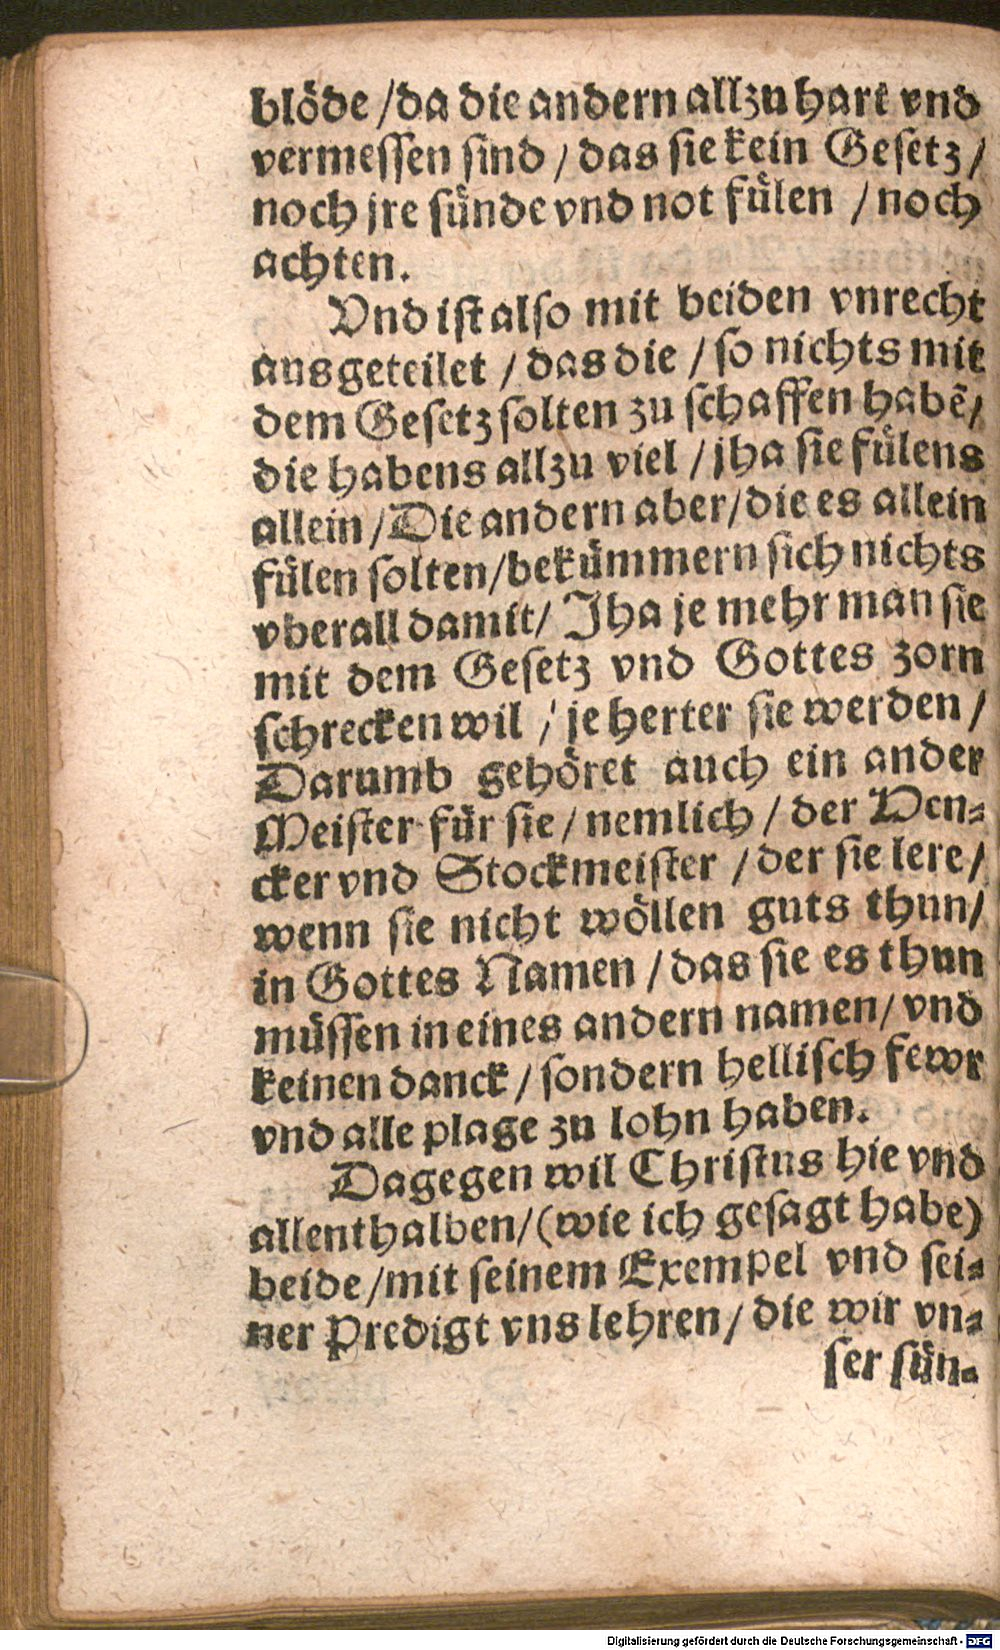 blöde /da die andern allzu hart vnd
vermessen sind / das sie kein Gesetz /
noch jre sünde vnd not fülen / noch
achten.
Vnd ist also mit beiden vnrecht
ausgeteilet / das die / so nichts mit
dem Gesetz solten zu schaffen habẽ/
die habens allzu viel / jha sie fülens
allein /Die andern aber/die es allein
fülen solten/bekümmern sich nichts
vberall damit/ Jha je mehr man sie
mit dem Gesetz vnd Gottes zorn
schrecken wil / je herter sie werden /
Darumb gehöret auch ein ander
Meister für sie / nemlich / der Hen-
cker vnd Stockmeister / der sie lere/
wenn sie nicht wöllen guts thun/
in Gottes Namen / das sie es thun
müssen in eines andern namen/ vnd
keinen danck / sondern hellisch fewr
vnd alle plage zu lohn haben.
Dagegen wil Christus hie vnd
allenthalben/(wie ich gesagt habe)
beide /mit seinem Exempel vnd sei-
ner Predigt vns lehren / die wir vn-
ser sün-
Digitalisierung gefördert durch die Deutsche Forschungsgemeinschaft - DFG